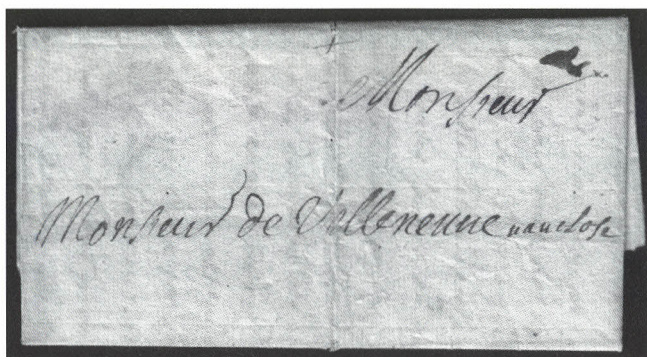 Monsieur
Monsieur de Villeneuve vauclose